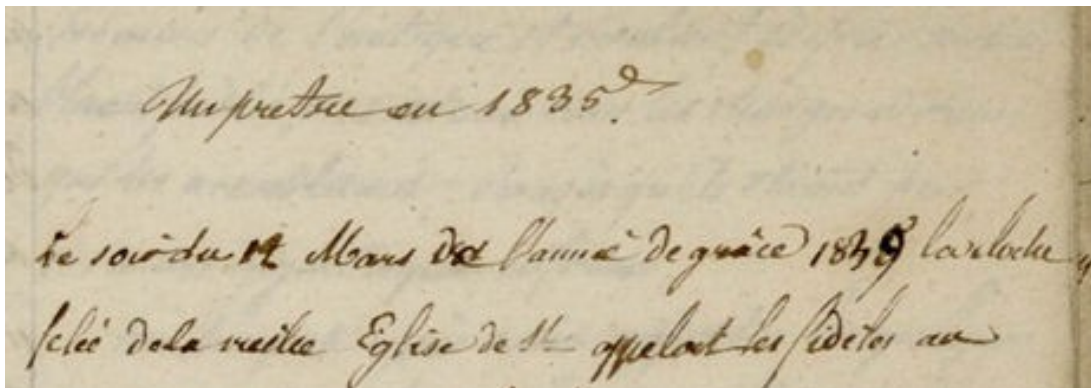 Un pretre en 1835.
Le soir du 14 Mars de l'année de grâce 1839 la cloche
felée de la vieille Eglise de St appeloit les fideles au